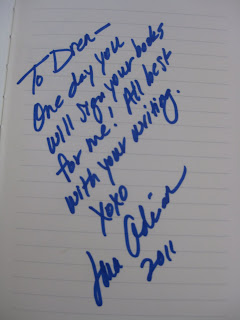 To Dren—
One day you
will sign your books
for me! All best
with your writing.
XOXO
Lara Adrian
2011